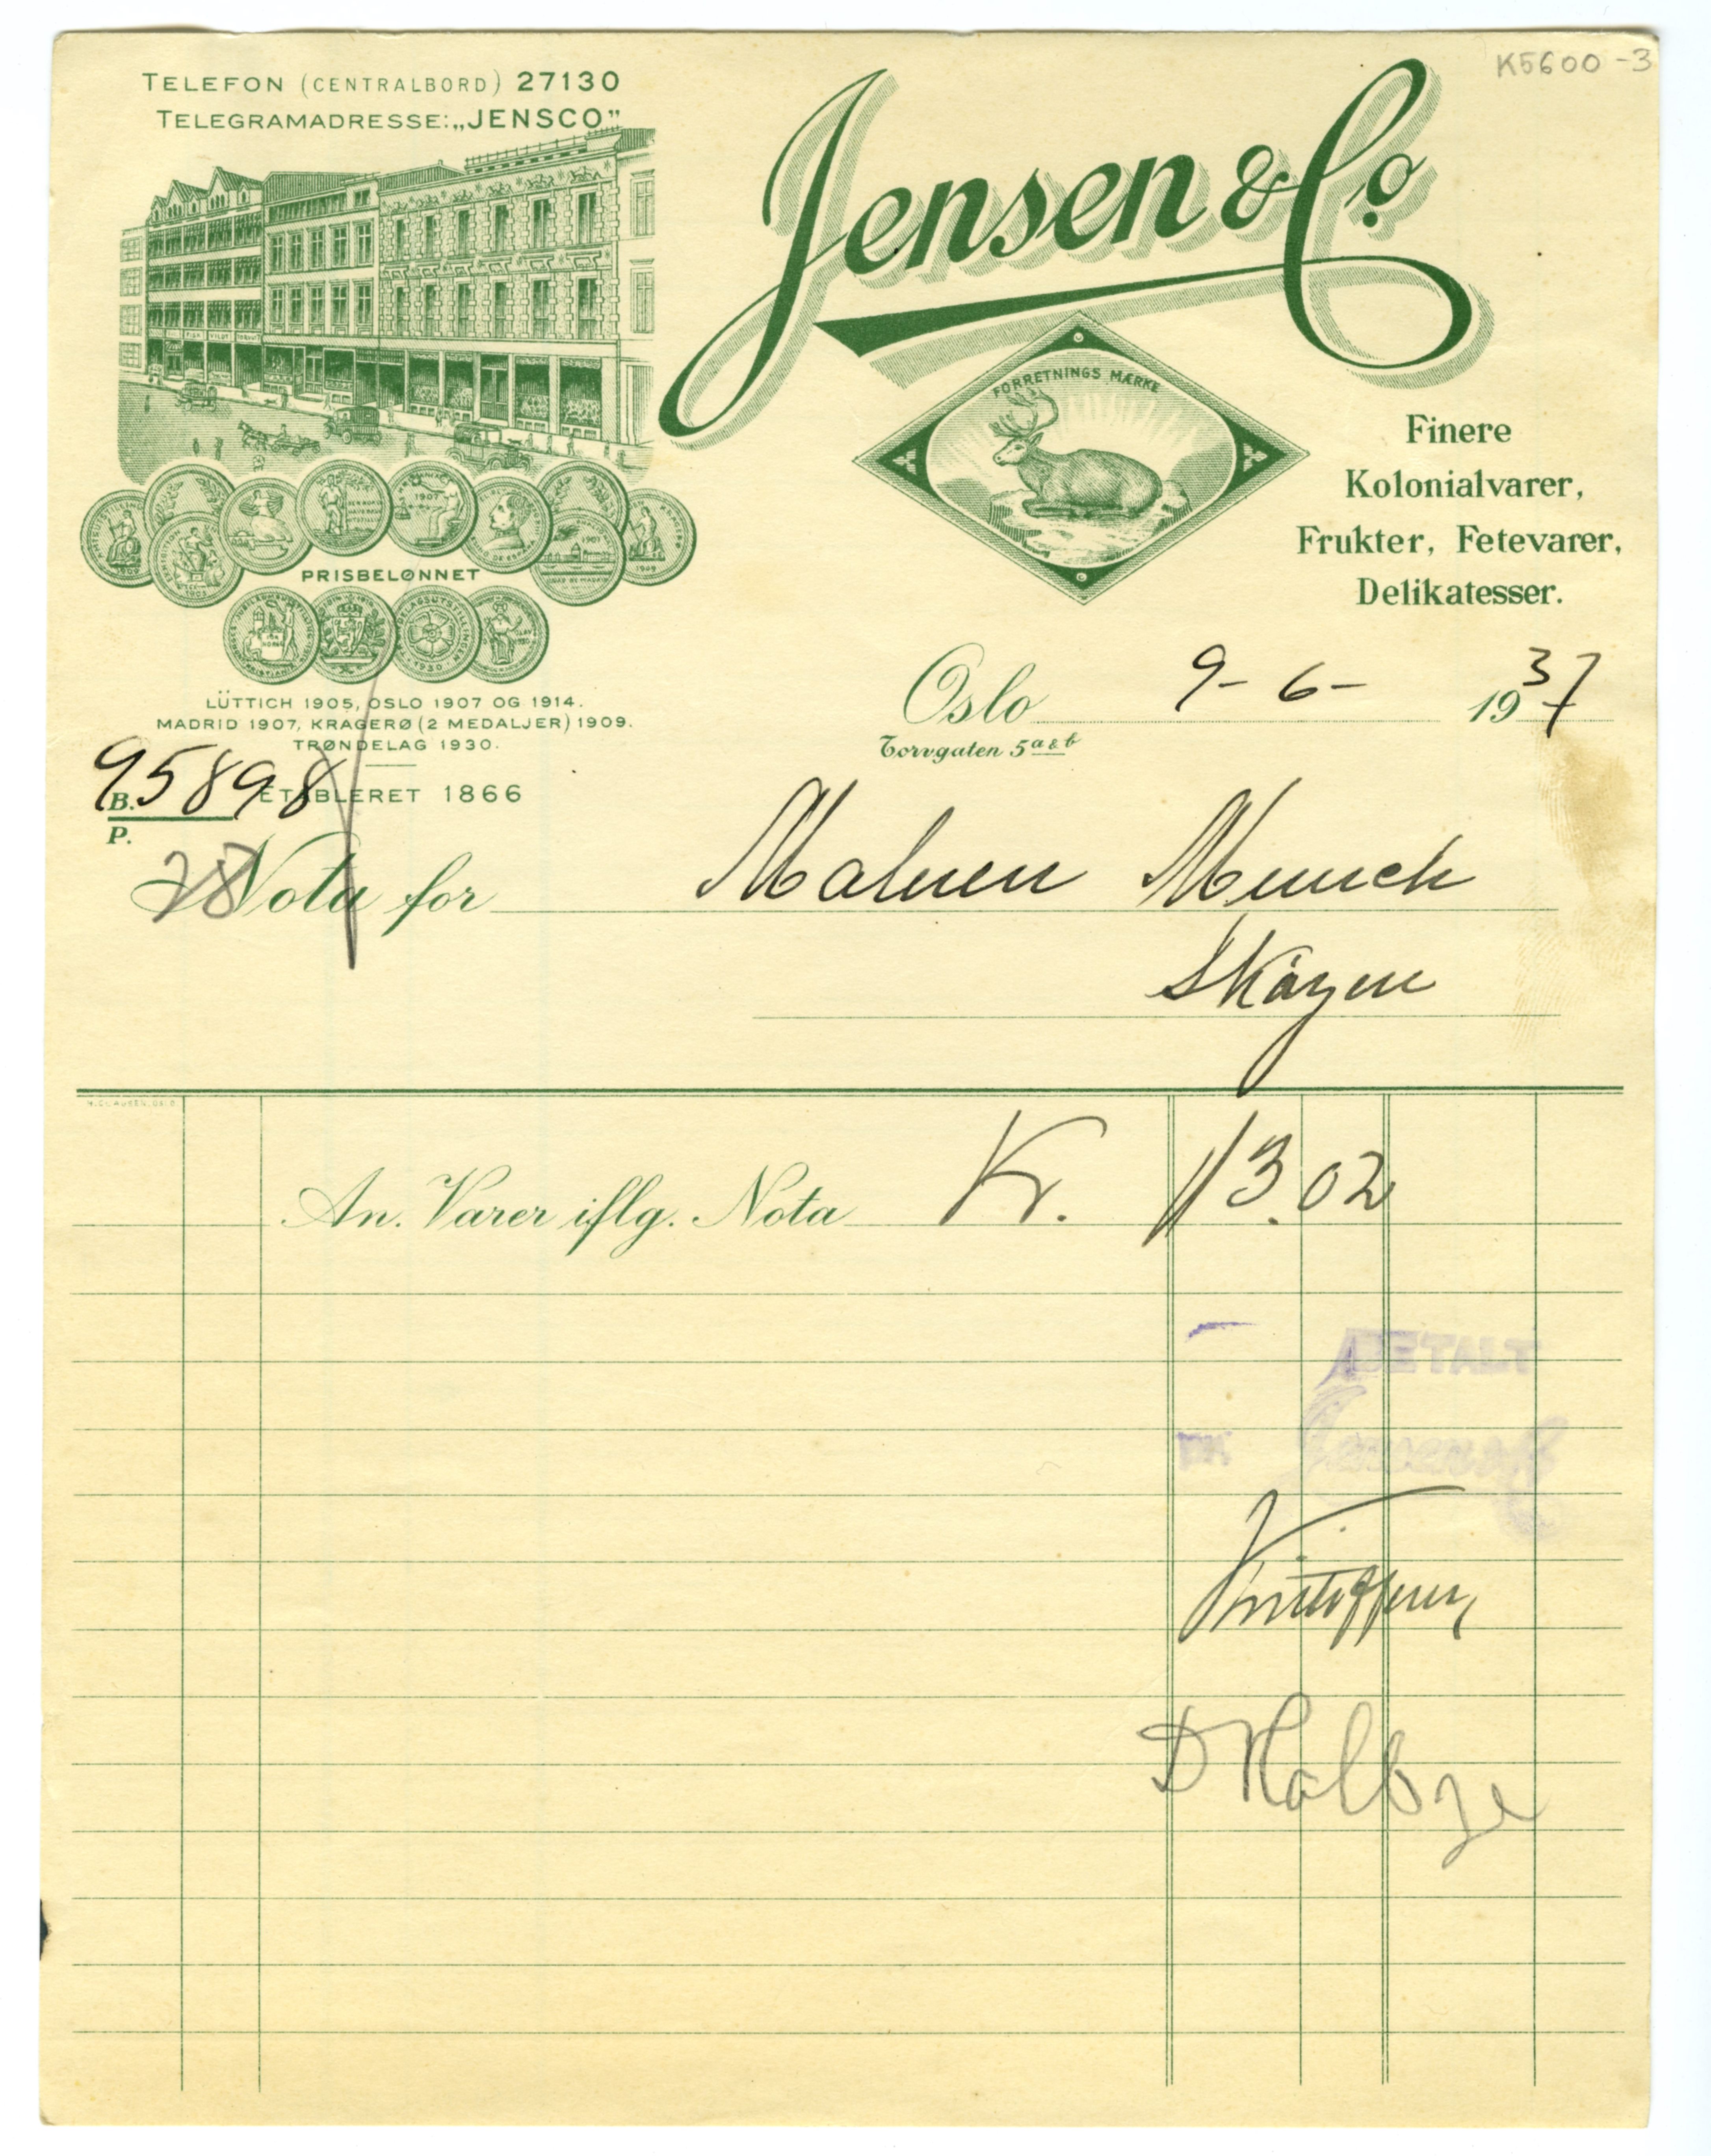 K5600-3
TELEFON (CENTRALBORD) 27130
TELEGRAMADRESSE: „JENSCO”
Jensen & Co
FORRETNINGS MÆRKE
Finere
Kolonialvarer,
Frukter, Fetevarer,
Delikatesser.
PRISBELØNNET
LÜTTICH 1905, OSLO 1907 OG 1914.
MADRID 1907, KRAGERØ (2 MEDALJER) 1909.
TRØNDELAG 1930.
ETABLERET 1866
Oslo 9-6- 1937
Torvgaten 5 a & b
B. 95898
P.
Nota for Maleren Munch
Skøyen
An. Varer iflg. Nota Kr. 113.02
BETALT
Jensen & Co